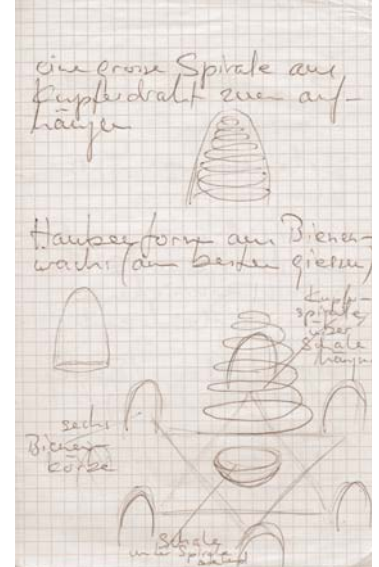 eine grosse Spirale aus
Kupferdraht zum auf-
hängen
Haubenform aus Bienen-
wachs (am besten giessen)
Kupfer-
spirale
über
Schale
hängen
sechs
Bienen-
körbe
Schale
unter Spirale